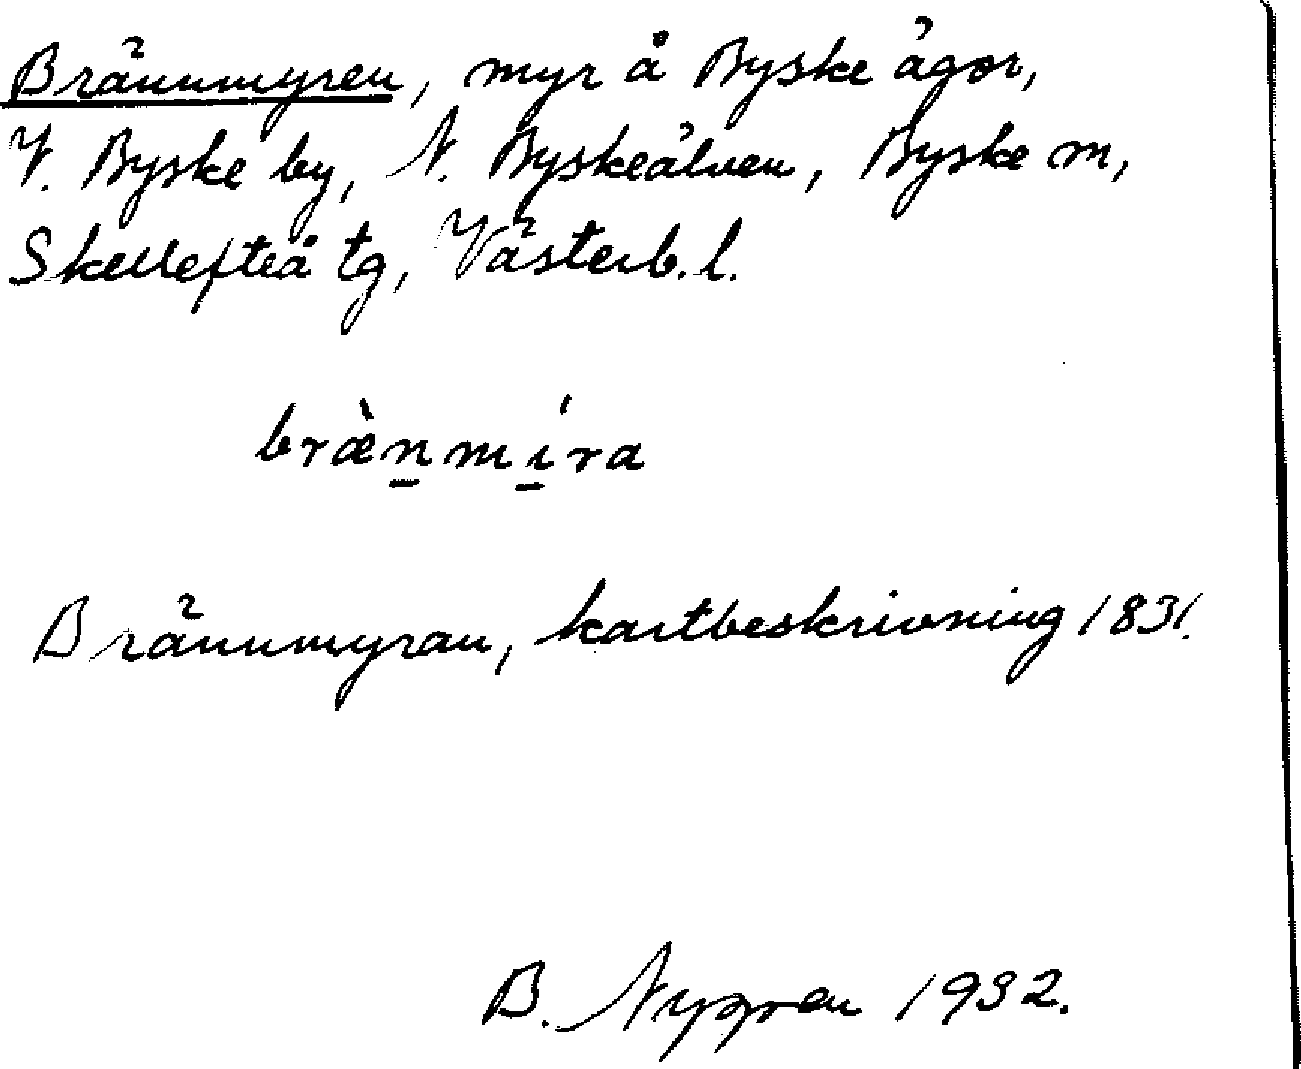 Brännmyren, myr å Byske ägor,
V. Byske by, N. Byskeälven, Byske m,
Skellefteå tg, Västerb. l.
bræ̀n̲mí̲ra
Brännmyran, kartbeskrivning 1831.
B. Nygren 1932.